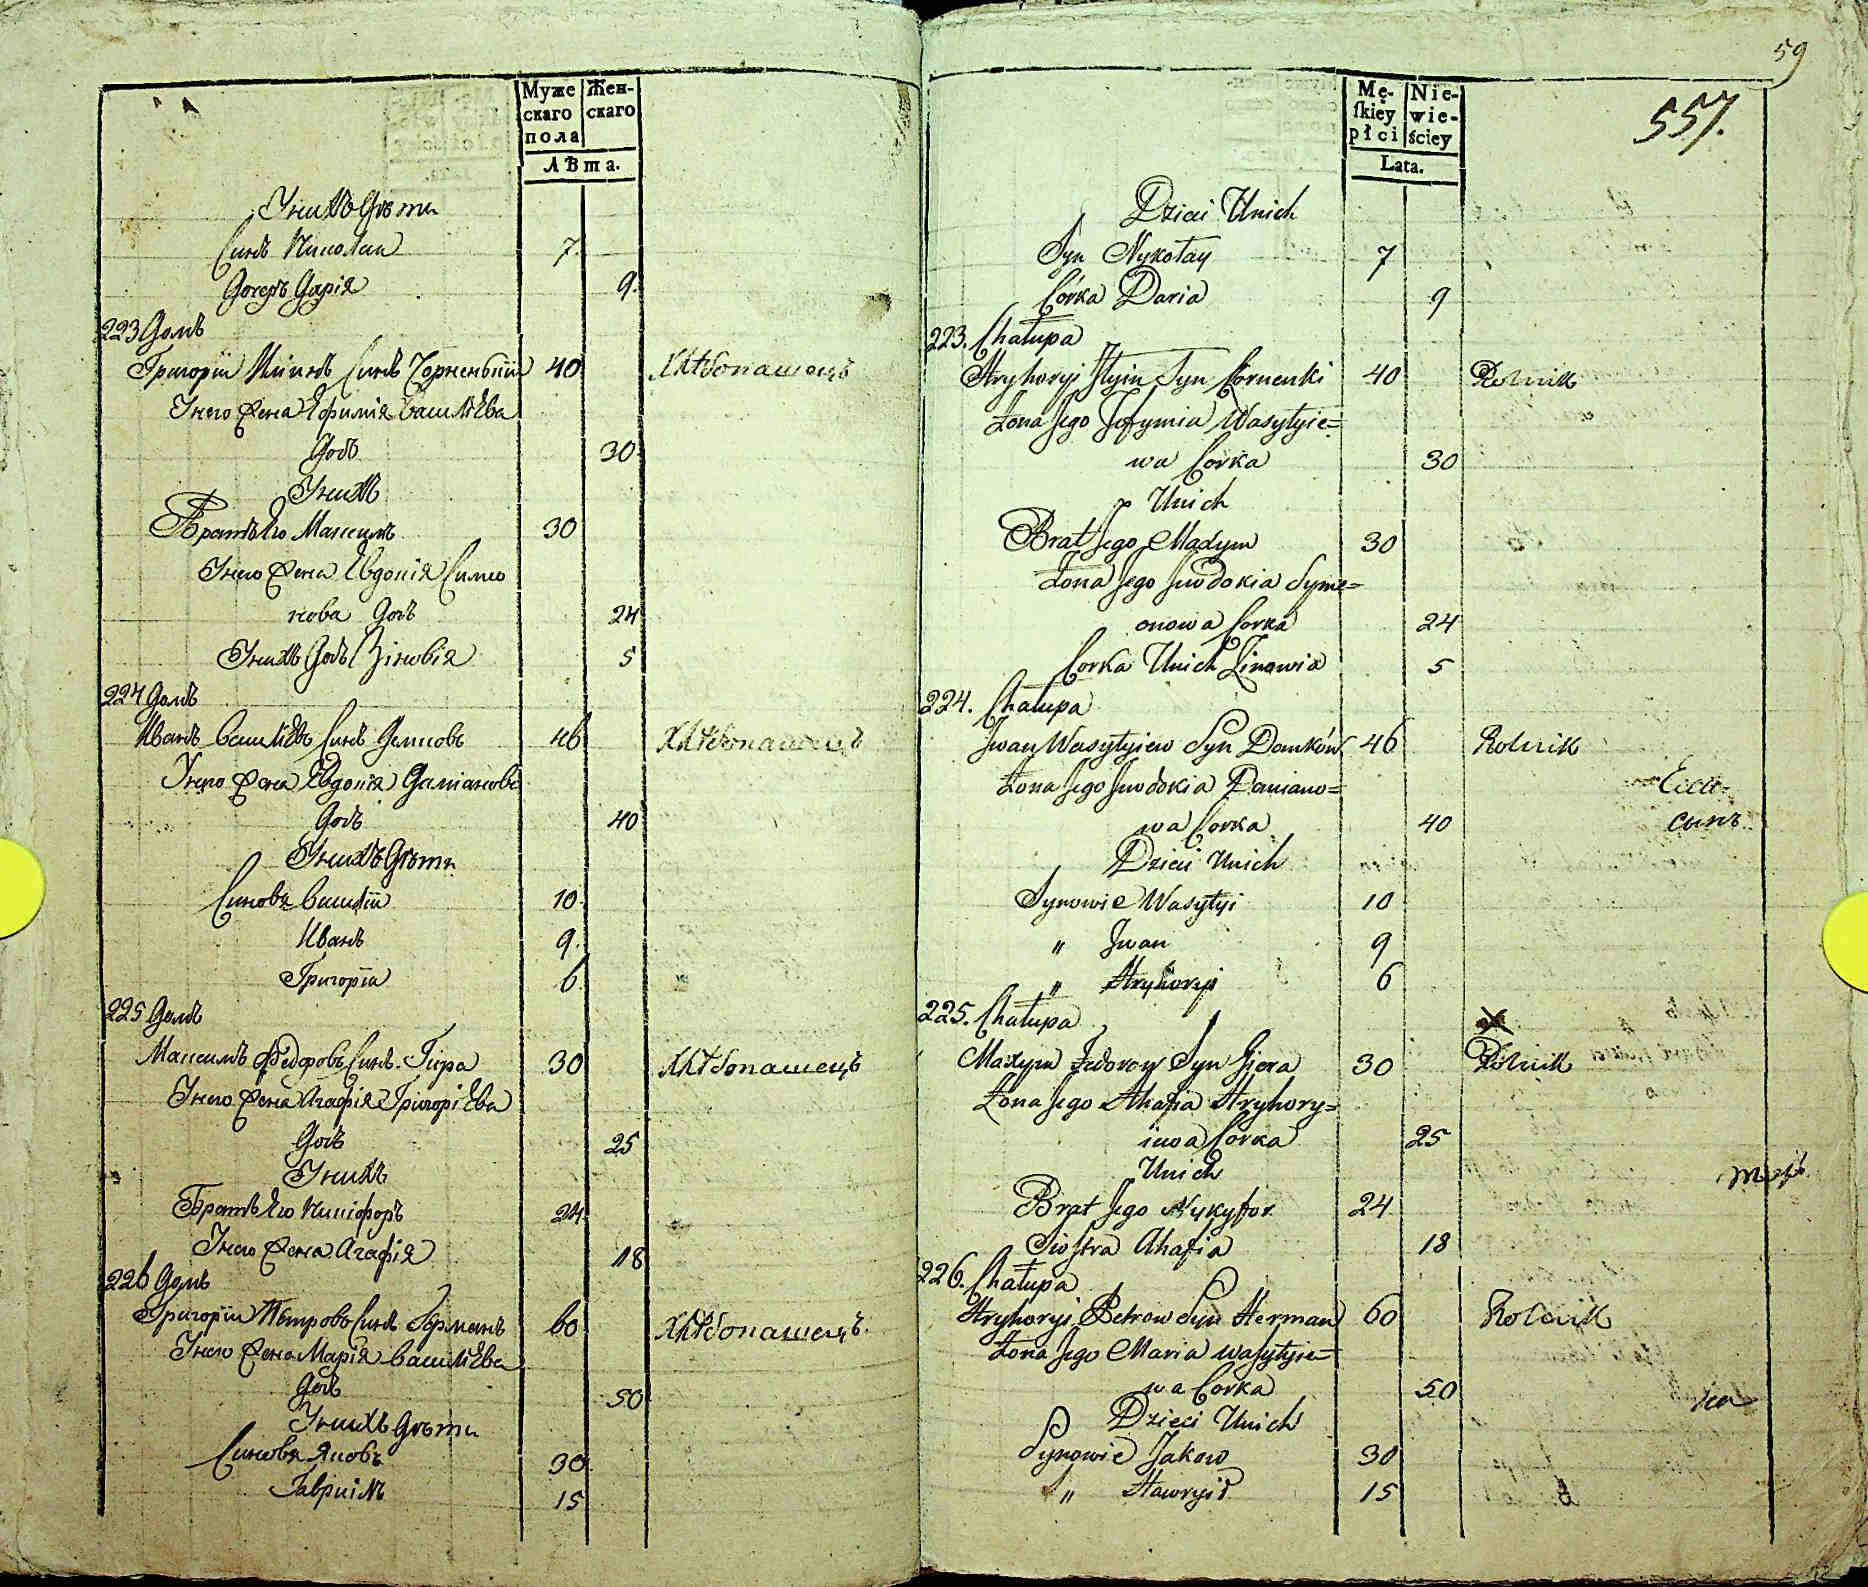 Муже Жен-
скаго скаго
пола
Лѣта.
У нихъ дѣти
Синъ Николаи 7.
Дочерь Дарія 9.
223 Домъ
Григоріи Илїинъ Синъ Чорненькїи 40 Хлѣбопашецъ
У него Жена Ефимія Васильева
Дочь 30
У нихъ
Братъ Его Максимъ 30
У него Жена Евдокія Симео
нова Дочь 24
У нихъ Дочь Зіновія 5
224 Домъ
Иванъ Васильевъ Синъ Демковъ 46 Хлѣбопашецъ
У него Жена Евдокія Даміанова
Дочь 40
У нихъ Дѣти
Синовя Василїи 10.
Иванъ 9.
Григорїи 6
225 Домъ
Максимъ Федоровъ Синъ Гіора 30 Хлѣбопашецъ
У него Жена Агафія Григоріева
Дочь 25
У нихъ
Братъ Его Никіфоръ 24
У него Жена Агафія 18
226 Домъ
Григорїи Петровъ Синъ Германъ 60 Хлѣбопашецъ.
У него Жена Марія Васильева
Дочь 50
У нихъ Дѣти
Синовя Яковъ 30
Гавриїлъ 15
59
557.
Mę- Nie-
ſkiéy wie-
płci ściey
Lata.
Dzieci Unich
Syn Nykołay 7
Córka Daria 9
223. Chałupa
Hryhoryi Ilyin Syn Cornenki 40 Rolnik
Żona Jego Jefymia Wasylyie=
wa Corka 30
Unich
Brat Jego Maxym 30
Żona Jego Jewdokia Syme=
onowa Corka 24
Corka Unich Zinowia 5
224. Chałupa
Jwan Wasylyiew Syn Demków 46 Rolnik
Żona Jego Jewdokia Damiano=
wa Corka 40
сынъ
Dzieci Unich
Synowie Wasylyi 10
" Jwan 9
" Hryhoryi 6
225. Chałupa
Maxym Fedorow Syn Giora 30 Rolnik
Żona Jego Ahafia Hryhory=
iewa Corka 25
Unich
Brat Jego Nykyfor 24
Siostra Ahafia 18
226. Chałupa
Hryhoryi Petrow Syn Herman 60 Rolnik
Żona Jego Maria Wasylyie=
wa Corka 50
Dzieci Unich
Synowie Jakow 30
" Hawryił 15